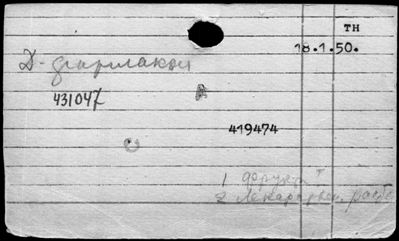 ТН
18.1.50.
Д-фармакол
431047
А
419474
1 фрукт
2 лекарствен. раст